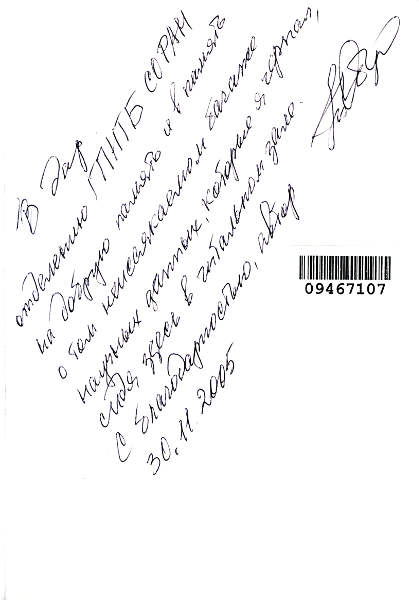 В дар
отделению ГПНТБ СО РАН
на добрую память и в память
о том неиссякаемом багаже
научных данных, которые я черпал,
сидя здесь в читальном зале.
С благодарностью, автор
30.11.2005
09467107